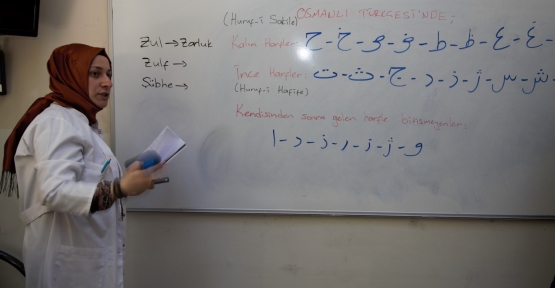 (Huruf-i Sakile) OSMANLI TÜRKÇESİ'NDE;
Zul → Zorluk
Zulf →
Şübhe →
Kalın Harfler: ح - خ - ص - ض - ط - ظ - ع - غ -
İnce Harfler: ت - ث - ج - د - ز - ژ - س - ش -
(Huruf-i Hafife)
Kendisinden sonra gelen harfle birleşmeyenler:
ا - د - ذ - ر - ز - ژ - و